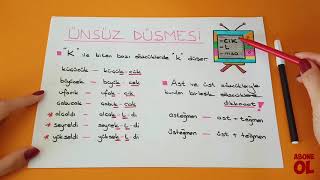 ÜNSÜZ DÜŞMESİ
"K" ile biten bazı sözcüklerde "k" düşer.
küçücük — küçük - cük
büyücek — büyük - cek
ufacık — ufak - cık
çabucak — çabuk - cak
* alçaldı — alçak - L - dı
* seyreldi — seyrek - L - di
* yükseldi — yüksek - L - di
- CİK
- L
Ast ve üst sözcükleriyle
kurulan birleşik sözcüklere
dikkat
asteğmen — ast + teğmen
üsteğmen — üst + teğmen
ABONE
OL